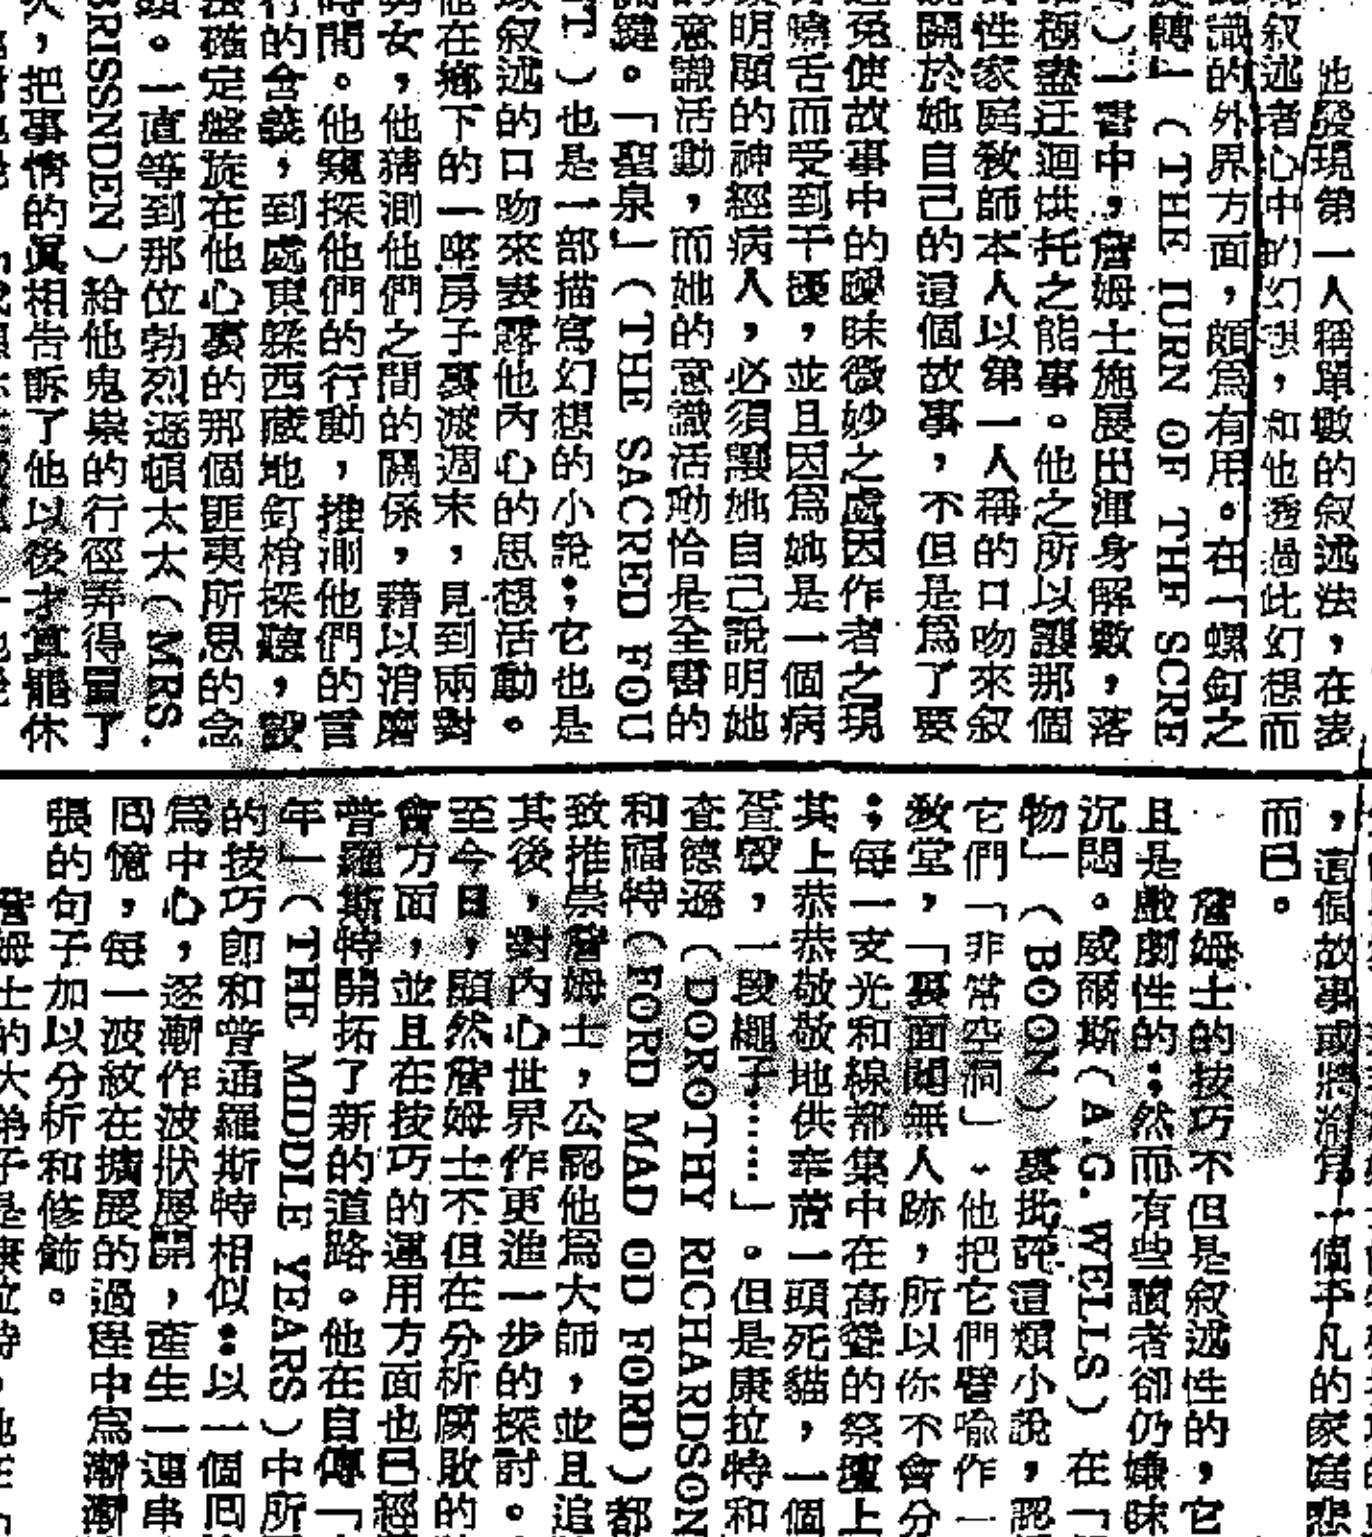 也發現第一人稱單數的叙述法，在表
叙述者心中的幻想，和他透過此幻想而
識的外界方面，頗爲有用。在「螺釘之
轉」（THE IURN OF THE SCRE
）一書中，詹姆士施展出渾身解數，落
極盡迂迴烘托之能事。他之所以讓那個
性家庭敎師本人以第一人稱的口吻來叙
關於她自己的這個故事，不但是爲了要
免使故事中的曖昧微妙之處因作者之現
嘵舌而受到干擾，並且因爲她是一個病
明顯的神經病人，必須讓她自己說明她
意識活動，而她的意識活動恰是全書的
鍵。「聖泉」（THE SACRED FOU
T）也是一部描寫幻想的小說；它也是
叙述的口吻來表露他內心的思想活動。
在鄉下的一座房子裏渡週末，見到兩對
男女，他猜測他們之間的關係，藉以消磨
時間。他窺探他們的行動，推測他們的言
行的含義，到處東躲西藏地釘梢探聽，設
確定盤旋在他心裏的那個匪夷所思的念
。一直等到那位勃烈遜頓太太（MRS.
BRISSNDEN）給他鬼祟的行徑弄得冒了
，把事情的眞相告訴了他以後才算罷休
，這個故事或將淪爲一個平凡的家庭悲
而已。
詹姆士的技巧不但是叙述性的，它
且是戲劇性的；然而有些讀者卻仍嫌
沉悶。威爾斯（A.G.WELLS）在「
物」（BOON）裏批評這類小說，認
它們「非常空洞」。他把它們譬喻作一
敎堂，「裏面闃無人跡，所以你不會分
；每一支光和線都集中在高聳的祭壇上
其上恭恭敬敬地供奉着一頭死貓，一個
蛋殼，一段繩子……」。但是康拉特和
查德遜（DOROTHY RICHARDSON
和福特（FORD MAD OD FORD）都
致推崇詹姆士，公認他爲大師，並且追
其後，對內心世界作更進一步的探討。
至今日，顯然詹姆士不但在分析腐敗的
會方面，並且在技巧的運用方面也已經
普羅斯特開拓了新的道路。他在自傳「
年」（THE MIDDLE YEARS）中所
的技巧卽和普通羅斯特相似：以一個回
爲中心，逐漸作波狀展開，產生一連串
回憶，每一波紋在擴展的過程中爲漸漸
張的句子加以分析和修飾。
詹姆士的大弟子是康拉特，他在